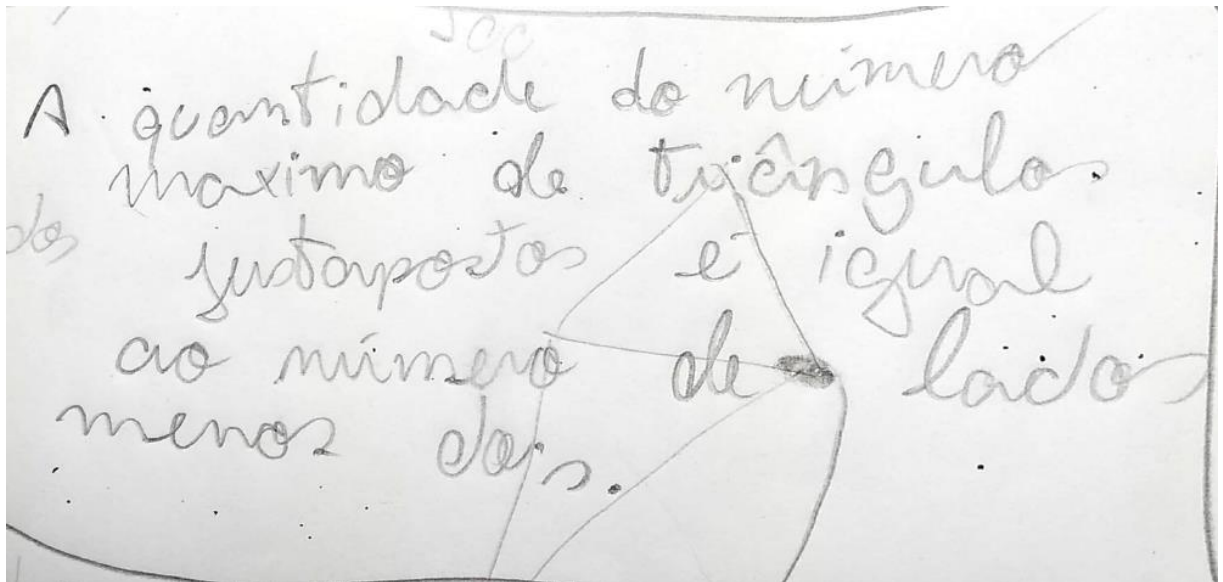 A quantidade do número
maximo de triângulos
justapostos é igual
ao número de lados
menos dois.